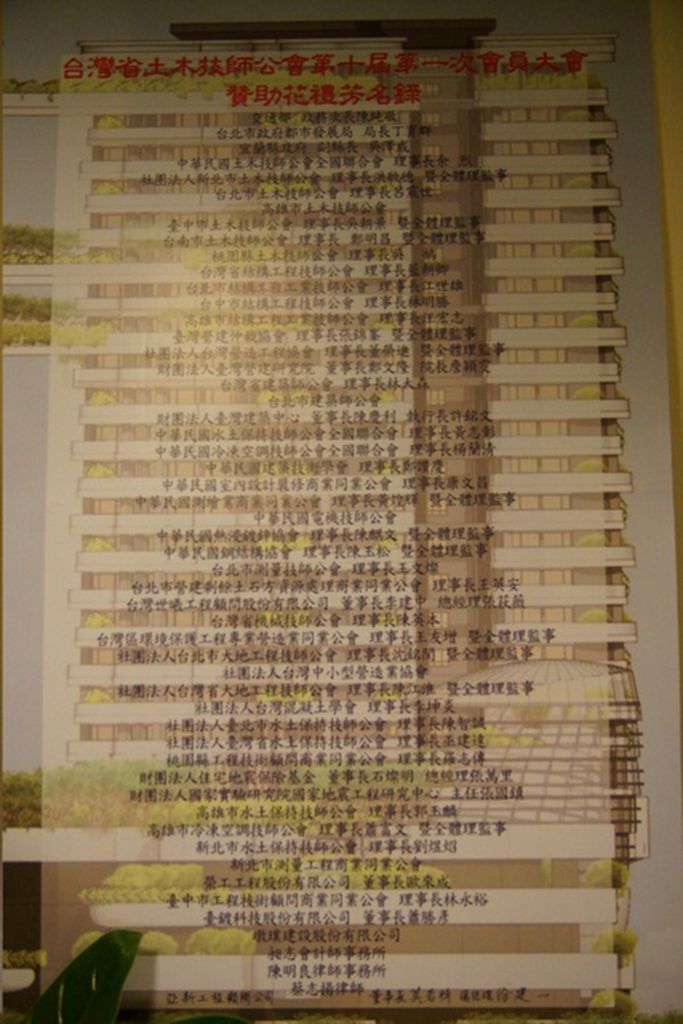 台灣省土木技師公會第十屆第一次會員大會
贊助花禮芳名錄
交通部 政務次長陳純敬
台北市政府都市發展局 局長丁育群
宜蘭縣政府 副縣長 吳澤成
中華民國土木技師公會全國聯合會 理事長余 烈
社團法人新北市土木技師公會 理事長洪啟德 暨全體理監事
台北市土木技師公會 理事長呂震世
高雄市土木技師公會
臺中市土木技師公會 理事長吳朝景 暨全體理監事
台南市土木技師公會 理事長 鄭明昌 暨全體理監事
桃園縣土木技師公會 理事長吳
台灣省結構工程技師公會 理事長藍朝卿
台北市結構工程工業技師公會 理事長江世雄
台中市結構工程技師公會 理事長林明勝
高雄市結構工程工業技師公會 理事長汪宏志
臺灣營建仲裁協會 理事長張錦峯 暨全體理監事
社團法人台灣營造工程協會 理事長董榮進 暨全體理監事
財團法人臺灣營建研究院 董事長鄭文隆 院長詹穎雯
台灣省建築師公會 理事長林大森
台北市建築師公會
財團法人臺灣建築中心 董事長陳慶利 執行長許銘文
中華民國水土保持技師公會全國聯合會 理事長黃志彰
中華民國冷凍空調技師公會全國聯合會 理事長楊蘭清
中華民國建築技術學會 理事長鄭體慶
中華民國室內設計裝修商業同業公會 理事長康文昌
中華民國測繪業商業同業公會 理事長黃煌輝 暨全體理監事
中華民國電機技師公會
中華民國熱浸鍍鋅協會 理事長陳麒文 暨全體理監事
中華民國鋼結構協會 理事長陳玉松 暨全體理監事
台北市測量技師公會 理事長王文燦
台北市營建剩餘土石方資源處理商業同業公會 理事長王英安
台灣世曦工程顧問股份有限公司 董事長李建中 總經理張荻薇
台灣省機械技師公會 理事長陳英冰
台灣區環境保護工程專業營造業同業公會 理事長王友增 暨全體理監事
社團法人台北市大地工程技師公會 理事長沈銘閒 暨全體理監事
社團法人台灣中小型營造業協會
社團法人台灣省大地工程技師公會 理事長陳江淮 暨全體理監事
社團法人台灣混凝土學會 理事長李坤炎
社團法人臺北市水土保持技師公會 理事長陳智誠
社團法人臺灣省水土保持技師公會 理事長巫建達
桃園縣工程技術顧問商業同業公會 理事長羅志傳
財團法人住宅地震保險基金 董事長石燦明 總經理張萬里
財團法人國家實驗研究院國家地震工程研究中心 主任張國鎮
高雄市水土保持技師公會 理事長郭玉麟
高雄市冷凍空調技師公會 理事長蕭富文 暨全體理監事
新北市水土保持技師公會 理事長劉煜炤
新北市測量工程商業同業公會
榮工工程股份有限公司 董事長歐來成
臺中市工程技術顧問商業同業公會 理事長林永裕
臺鍍科技股份有限公司 董事長蕭勝彥
墩璞建設股份有限公司
昶志會計師事務所
陳明良律師事務所
蔡志揚律師
亞新工程顧問公司 董事長莫若楫 總經理徐建一